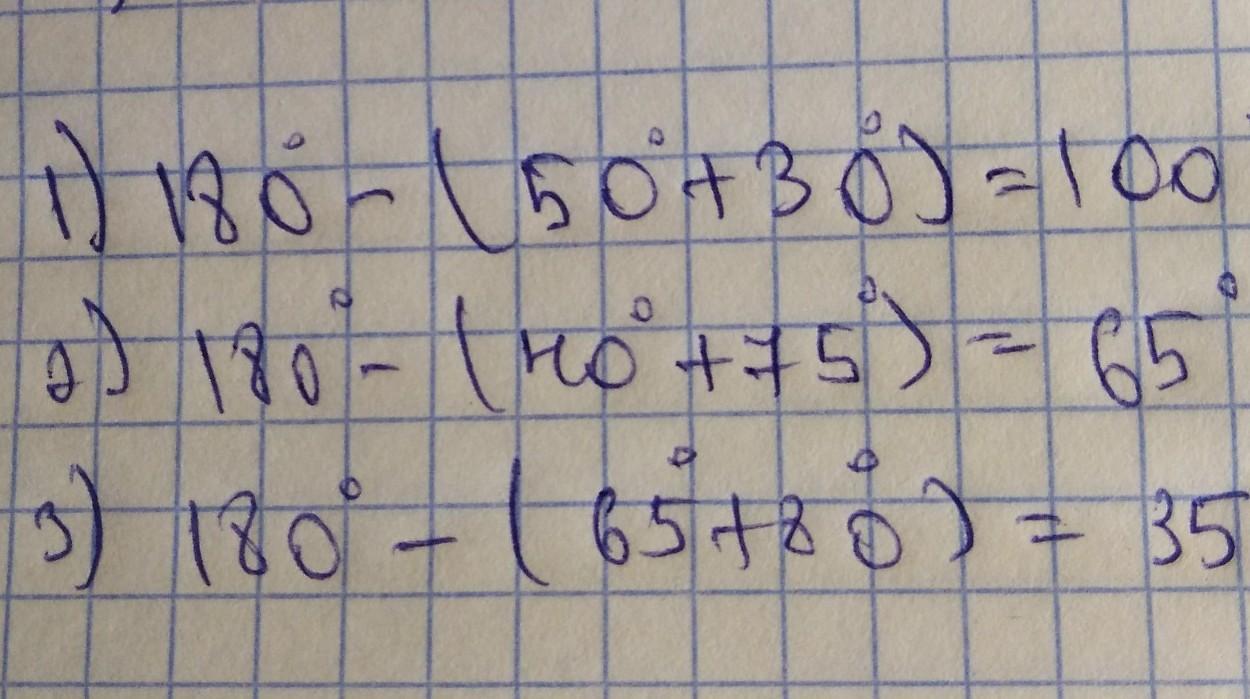 1) 180° - (50° + 30°) = 100°
2) 180° - (40° + 75°) = 65°
3) 180° - (65° + 80°) = 35